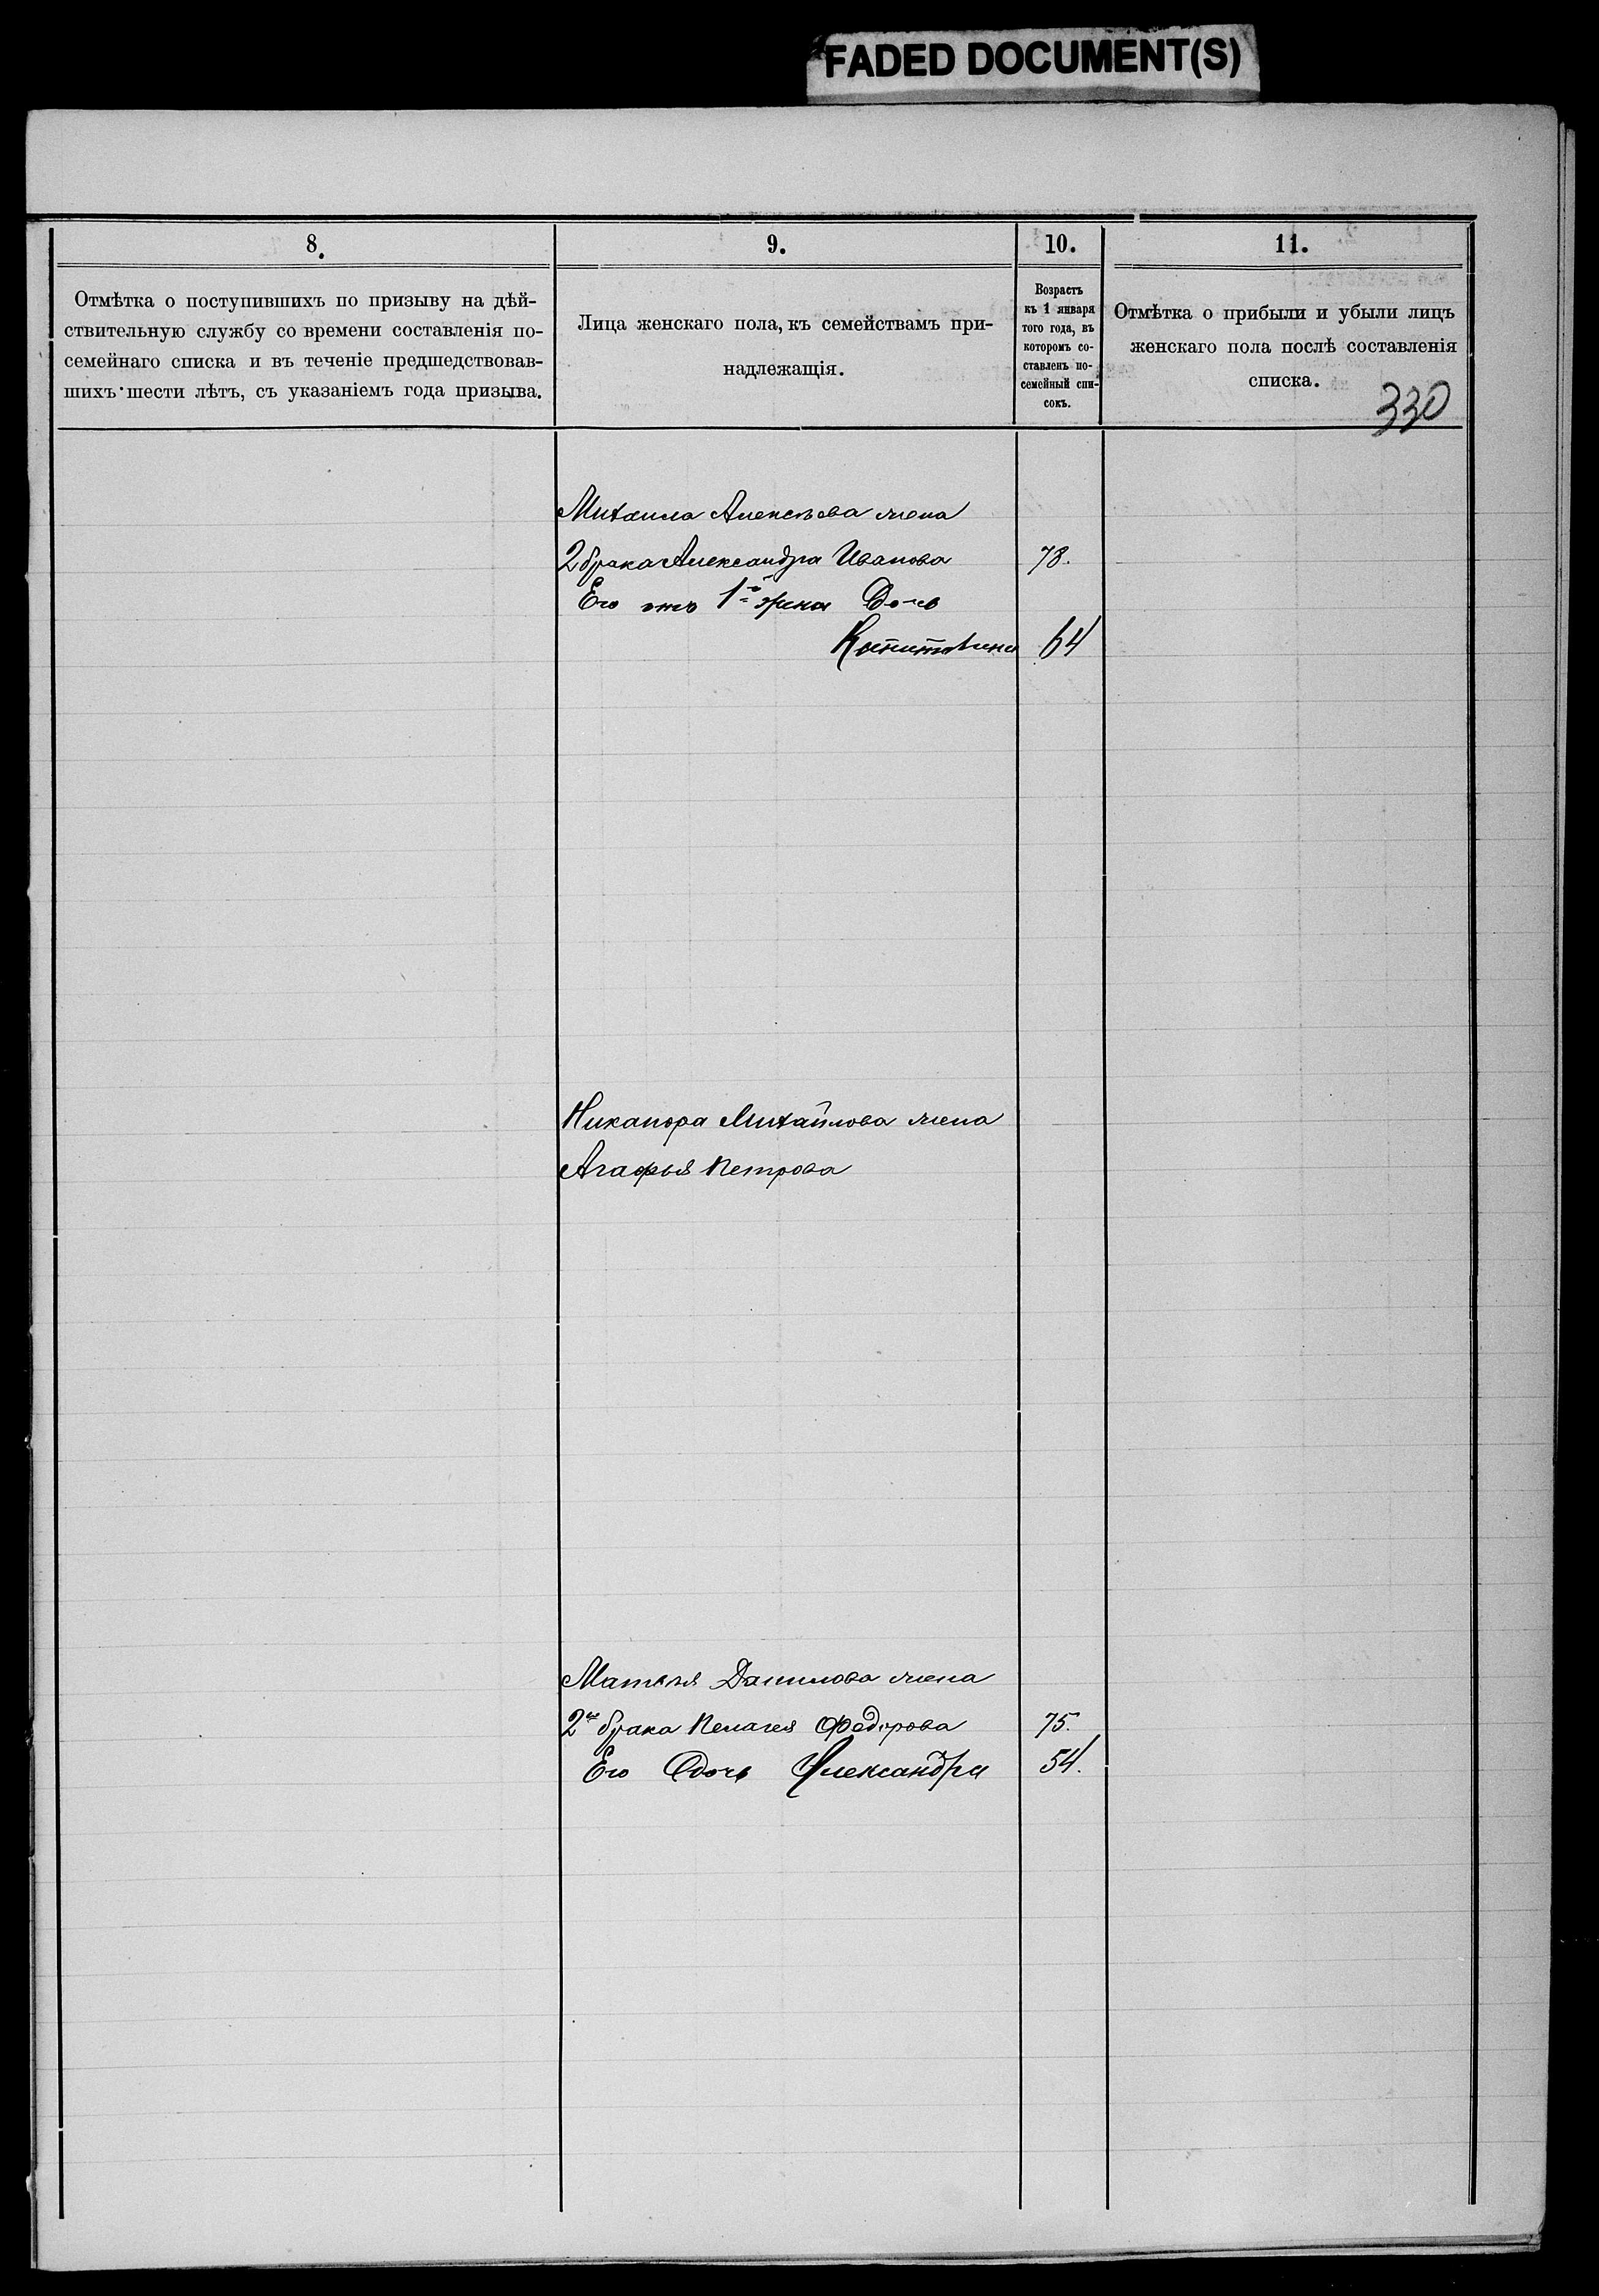 FADED DOCUMENT(S)
8.
9.
10.
11.
Отмѣтка о поступившихъ по призыву на дѣй-
ствительную службу со времени составленія по-
семейнаго списка и въ теченіе предшедствовав-
шихъ шести лѣтъ, съ указаніемъ года призыва.
Лица женскаго пола, къ семействамъ при-
надлежащія.
Возрастъ
къ 1 января
того года, въ
которомъ со-
ставленъ по-
семейный спи-
сокъ.
Отмѣтка о прибыли и убыли лицъ
женскаго пола послѣ составленія
списка.
330
Михаила Алексѣева жена
2 брака Александра Иванова 78.
Его отъ 1й жена Дочь
Капитолина 64
Никанора Михайлова жена
Агафья Петрова
Матвѣя Данилова жена
2го брака Пелагея Федорова 75.
Его дочь Александра 54.